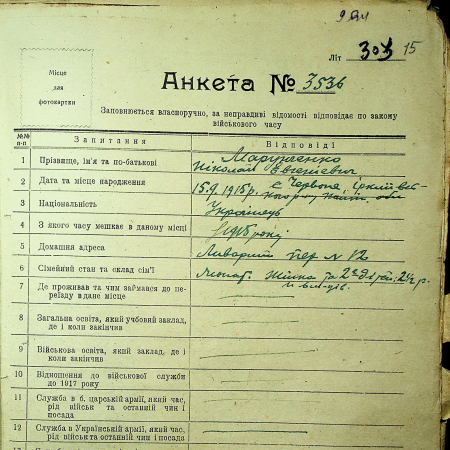 Літ 303 15
Місце
для
фотокартки
Анкета № 3536
Заповнюється власноручно, за неправдиві відомості відповідає по закону
військового часу
№№
п-п
Запитання
Відповіді
1 Прізвище, ім'я та по-батькові
Марущенко
Николай Евгениевич
2 Дата та місце народження
15.9.1915р. с. Червоне,
3 Національність
Українець
4 З якого часу мешкає в даному місці
року
5 Домашня адреса
Ливарний пер № 12
6 Сімейний стан та склад сім'ї
жінка та 2є дітей:
7 Де проживав та чим займався до пе-
реїзду в дане місце
8 Загальна освіта, який учбовий заклад,
де і коли закінчив
9 Військова освіта, який заклад, де і
коли закінчив
10 Відношення до військової служби
до 1917 року
11 Служба в б. царській армії, який час,
рід військ та останній чин і
посада
12 Служба в Українській армії, який час,
рід військ та останній чин і посада